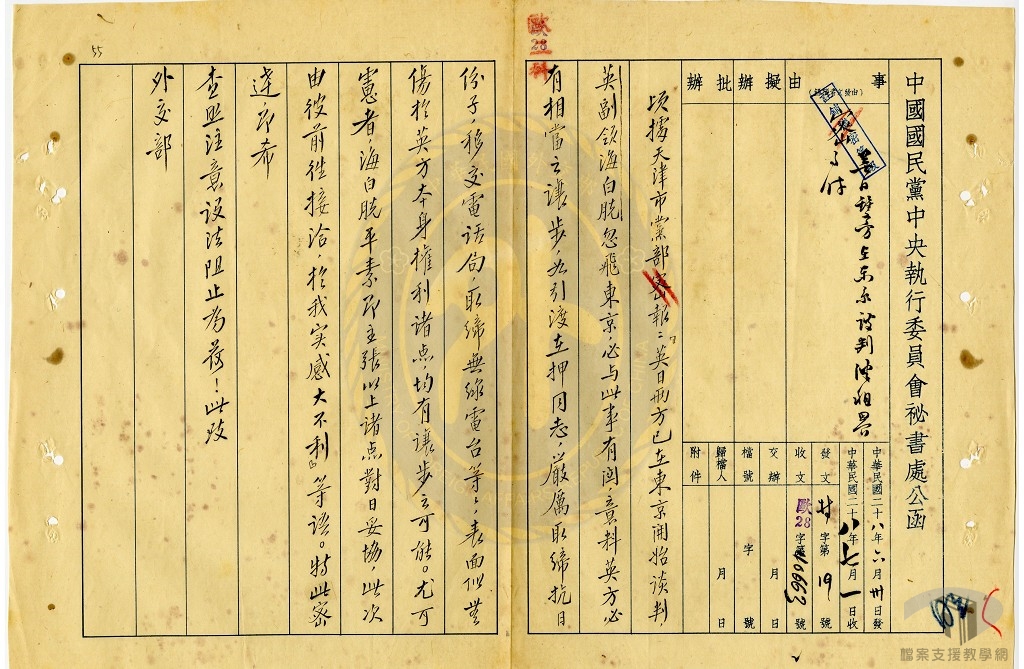 中國國民黨中央執行委員會祕書處公函
中華民國二十八年六月卅日發
中華民國二十八年七月一日收
發文 字第19號
收文 歐28字第 號
交辦 月 日
檔號 字 號
歸檔人 月 日
附件
事由
擬辦
批辦
歐亞科
28
頃據天津市黨部密報:『英日兩方已在東京開始談判,
英副領海白脫忽飛東京,必與此事有關,意料英方必
有相當之讓步,如引渡在押同志,嚴厲取締抗日
份子,移交電話局,取締無線電台等,表面似無
傷於英方本身權利諸點,均有讓步之可能。尤可
慮者,海白脫平素即主張以上諸点對日妥協,此次
由彼前往接洽,於我实感大不利』等語。特此密
達,即希
查照注意,设法阻止為荷!此致
外交部
55
檔案支援教學網